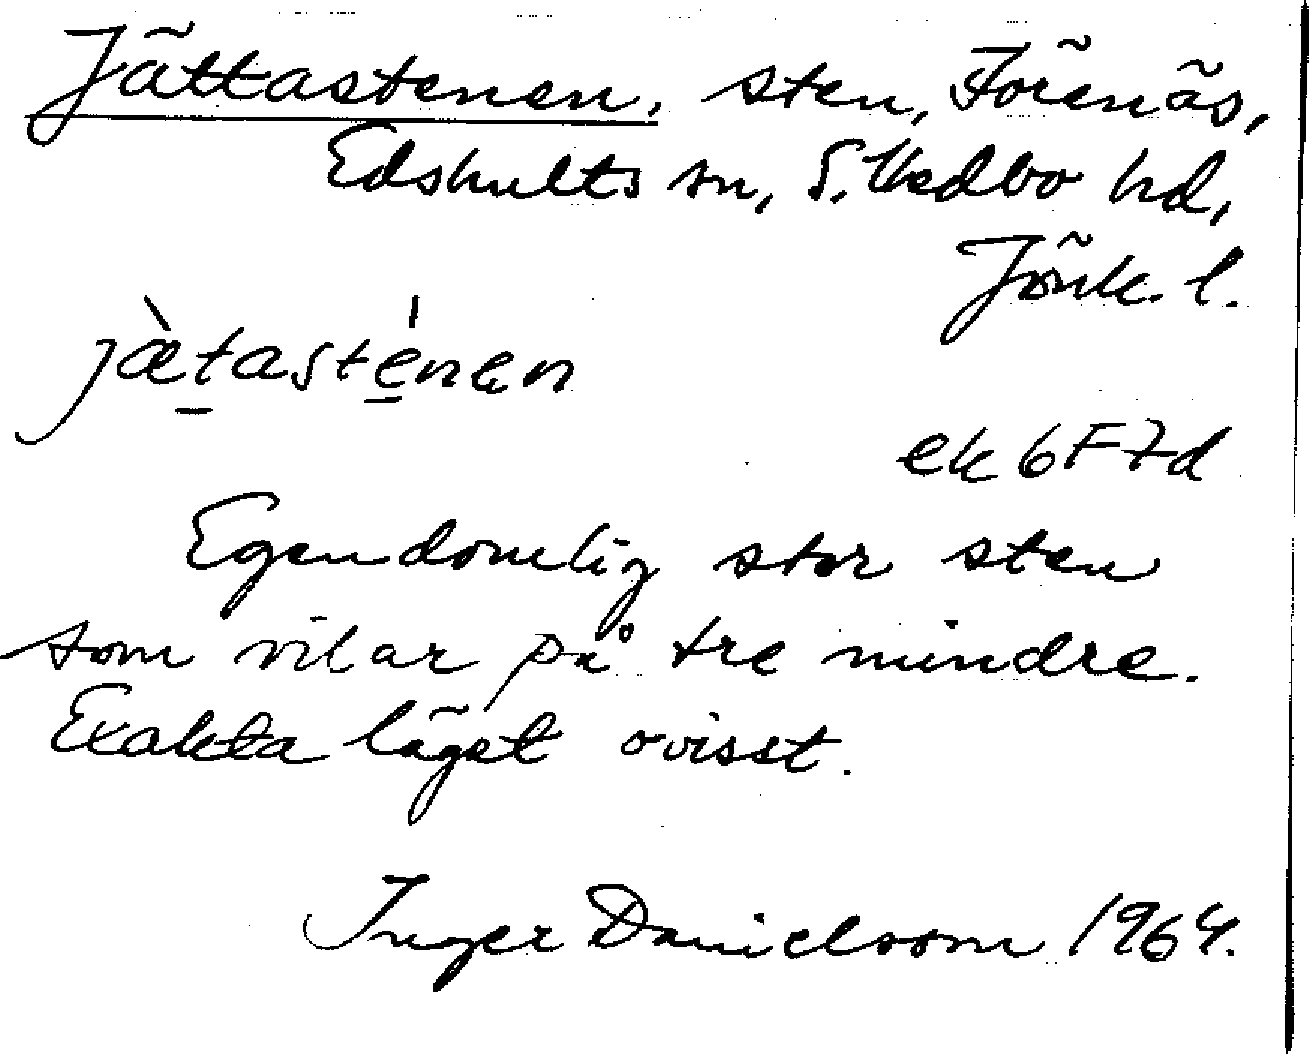 Jättastenen, sten, Förenäs,
Edshults sn, S. Vedbo hd,
Jönk. l.
jæ̀t̲asté̲nen
ek 6F7d
Egendomlig stor sten
som vilar på tre mindre.
Exakta läget ovisst.
Inger Danielsson 1964.